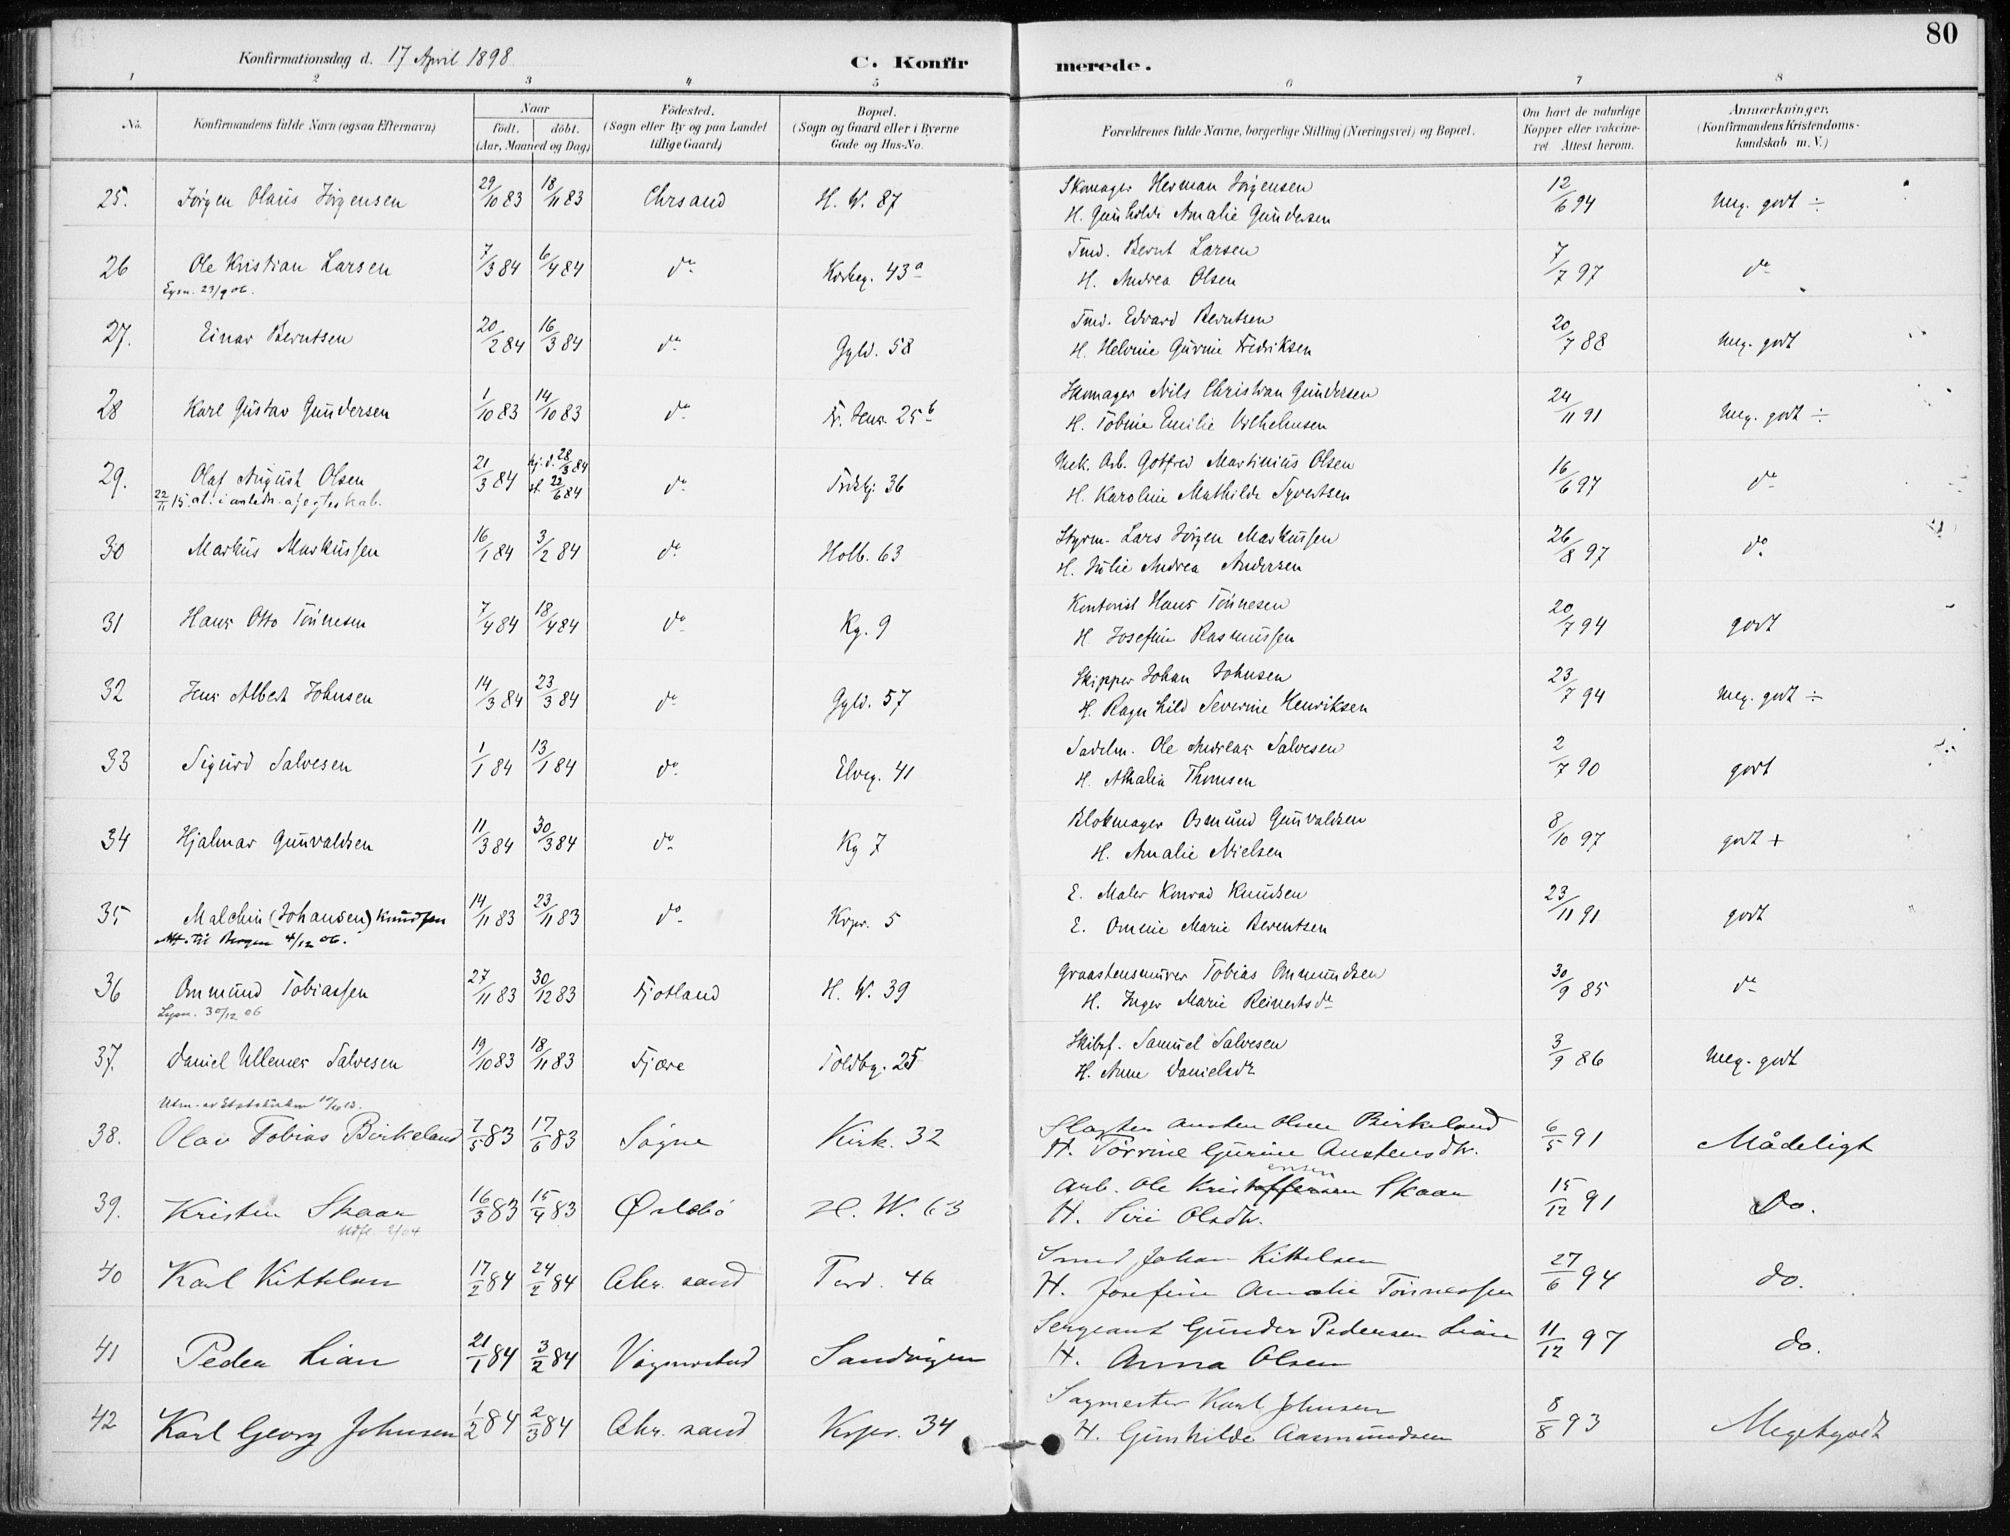 80
Konfirmationsdag d. 17 April 1898
C. Konfirmerede.
1 2 3 4 5 6 7 8
No. Konfirmandens fulde Navn (ogsaa Efternavn) Naar födt. döbt. (Aar, Maaned og Dag) Födested. (Sogn eller By og paa Landet tillige Gaard) Bopæl. (Sogn og Gaard eller i Byerne Gade og Hus-No. Forældrenes fulde Navne, borgerlige Stilling (Næringsvei) og Bopæl. Om havt de naturlige Kopper eller vakcineret. Attest herom. Anmærkninger. (Konfirmandens Kristendomskundskab m. V.)
25. Jörgen Olaus Jörgensen 29/10 83 18/11 83 Chrsand H. W. 87 Skomager Herman Jörgensen 12/6 94 Meg. godt ÷
H. Gunhilde Amalie Gundersen
26 Ole Kristian Larsen 7/3 84 6/4 84 do Kirkeg. 43a Tmd. Bernt Larsen 7/7 97 do
23/9 06. H. Andrea Olsen
27. Einar Berntsen 20/2 84 16/3 84 do Gyld. 58 Tmd. Edvard Berntsen 20/7 88 Meg. godt
H. Helvine Gurine Fredriksen
28 Karl Gustav Gundersen 1/10 83 14/10 83 do Fr. Hens. 25b Skomager Nils Christian Gundersen 24/11 91 Meg. godt ÷
H. Tobine Emilie Vilhelmsen
29. Olaf August Olsen 21/3 84 hj. d. 28/3 84 st. 22/6 84 do 36 Mek. Arb. Gotfred Martinius Olsen 16/6 97 do
22/11 15. at. i anledn. af egteskab. H. Karoline Mathilde Syvertsen
30 Markus Markussen 16/1 84 3/2 84 do Holb. 63 Styrm. Lars Jörgen Markussen 26/8 97 do
H. Julie Andrea Andersen
31 Hans Otto Tönnesen 7/4 84 18/4 84 do Kg. 9 Kontorist Hans Tönnesen 20/7 94 godt
H Josefine Rasmussen
32 Jens Albert Johnsen 14/3 84 23/3 84 do Gyld. 57 Skipper Johan Johnsen 23/7 94 Meg. godt ÷
H. Ragnhild Severine Henriksen
33 Sigurd Salvesen 1/1 84 13/1 84 do Elveg. 41 Sadelm. Ole Andreas Salvesen 2/7 90 godt
H. Athalia Thomsen
34 Hjalmar Gunvaldsen 11/3 84 30/3 84 do Kg 7 Blokmager Osmund Gunvaldsen 8/10 97 godt +
H. Amalie Nielsen
35 Malchin (Johansen) Knudsen 14/11 83 23/11 83 do Krpr. 5 E. Maler Konrad Knudsen 23/11 91 godt
Att. til Bergen 4/12 06. E. Omine Marie Berentsen
36 Ommund Tobiassen 27/11 83 30/12 83 Fjotland H. W. 39 Graastensmurer Tobias Ommundsen 30/9 85 do
Lysn. 30/12 06 H. Inger Marie Reinertsdr
37. Daniel Ullenes Salvesen 19/10 83 18/11 83 Fjære Toldbg. 25 Skibsf. Samuel Salvesen 3/9 86 Meg. godt
H. Anne Danielsdr
Utm. av Statskirken
38. Olav Tobias Birkeland 7/5 83 17/6 83 Søgne Kirk. 32 Slagter Austen Olsen Birkeland 6/5 91 Mådeligt
H. Torvine Gurine Austensdtr.
39. Kristen Skaar 16/3 83 15/4 83 Øslebö H. W. 63 Arb. Ole Kristensen Skaar 15/12 91 Do.
Udfl. 2/04 H. Siri Olsdtr.
40 Karl Kittelsen 17/2 84 24/2 84 Chr. sand Tord. 46 Smed Johan Kittelsen 27/6 94 do.
H. Josefine Amalie Tönnessen
41 Peder Lian 21/1 84 3/2 84 Vognsstad Sandvigen Sergeant Gunder Pedersen Lian 11/12 97 do.
H. Anna Olsen
42 Karl Georg Johnsen 1/2 84 2/3 84 Chr. sand Krpr. 34 Sagmester Karl Johnsen 8/8 93 Megetgodt
H. Gunhilde Aasmundsen